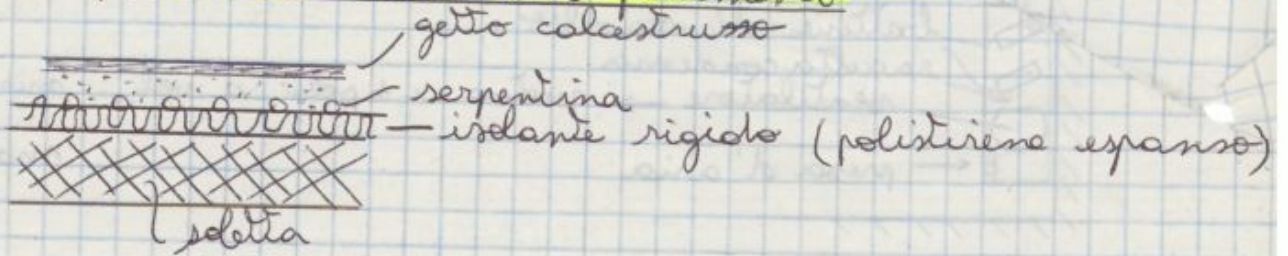 getto calcestruzzo
serpentina
isolante rigido (polistirene espanso)
soletta